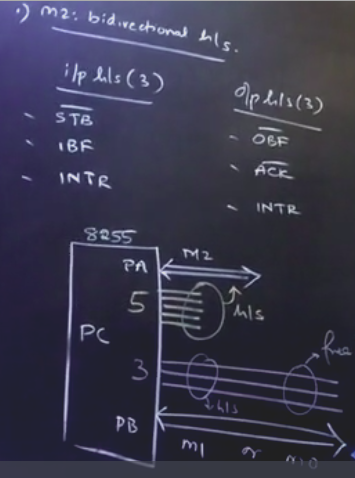 ·) M2: bidirectional h/s.
i/p h/s (3)
- S̅T̅B̅
- IBF
- INTR
o/p h/s (3)
- O̅B̅F̅
- A̅C̅K̅
- INTR
8255
PA
M2
5
h/s
PC
free
3
h/s
PB
M1 or M0